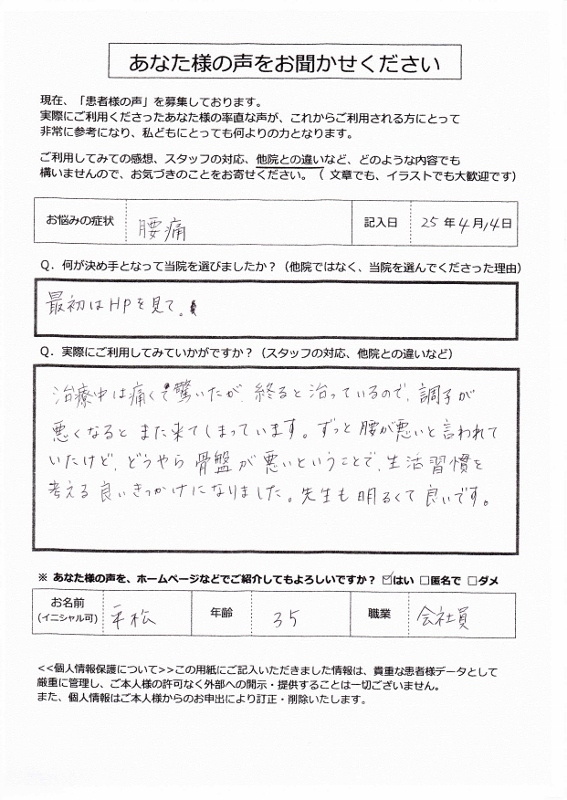 あなた様の声をお聞かせください
現在、「患者様の声」を募集しております。
実際にご利用くださったあなた様の率直な声が、これからご利用される方にとって
非常に参考になり、私どもにとっても何よりの力となります。
ご利用してみての感想、スタッフの対応、他院との違いなど、どのような内容でも
構いませんので、お気づきのことをお寄せください。（文章でも、イラストでも大歓迎です）
お悩みの症状 腰痛 記入日 25年4月14日
Q．何が決め手となって当院を選びましたか？（他院ではなく、当院を選んでくださった理由）
最初はHPを見て。
Q．実際にご利用してみていかがですか？（スタッフの対応、他院との違いなど）
治療中は痛くて驚いたが、終ると治っているので、調子が
悪くなるとまた来てしまっています。ずっと腰が悪いと言われて
いたけど、どうやら骨盤が悪いということで、生活習慣を
考える良いきっかけになりました。先生も明るくて良いです。
※ あなた様の声を、ホームページなどでご紹介してもよろしいですか？ ☑はい □匿名で □ダメ
お名前 平松 年齢 35 職業 会社員
(イニシャル可)
<<個人情報保護について>>この用紙にご記入いただきました情報は、貴重な患者様データとして
厳重に管理し、ご本人様の許可なく外部への開示・提供することは一切ございません。
また、個人情報はご本人様からのお申出により訂正・削除いたします。